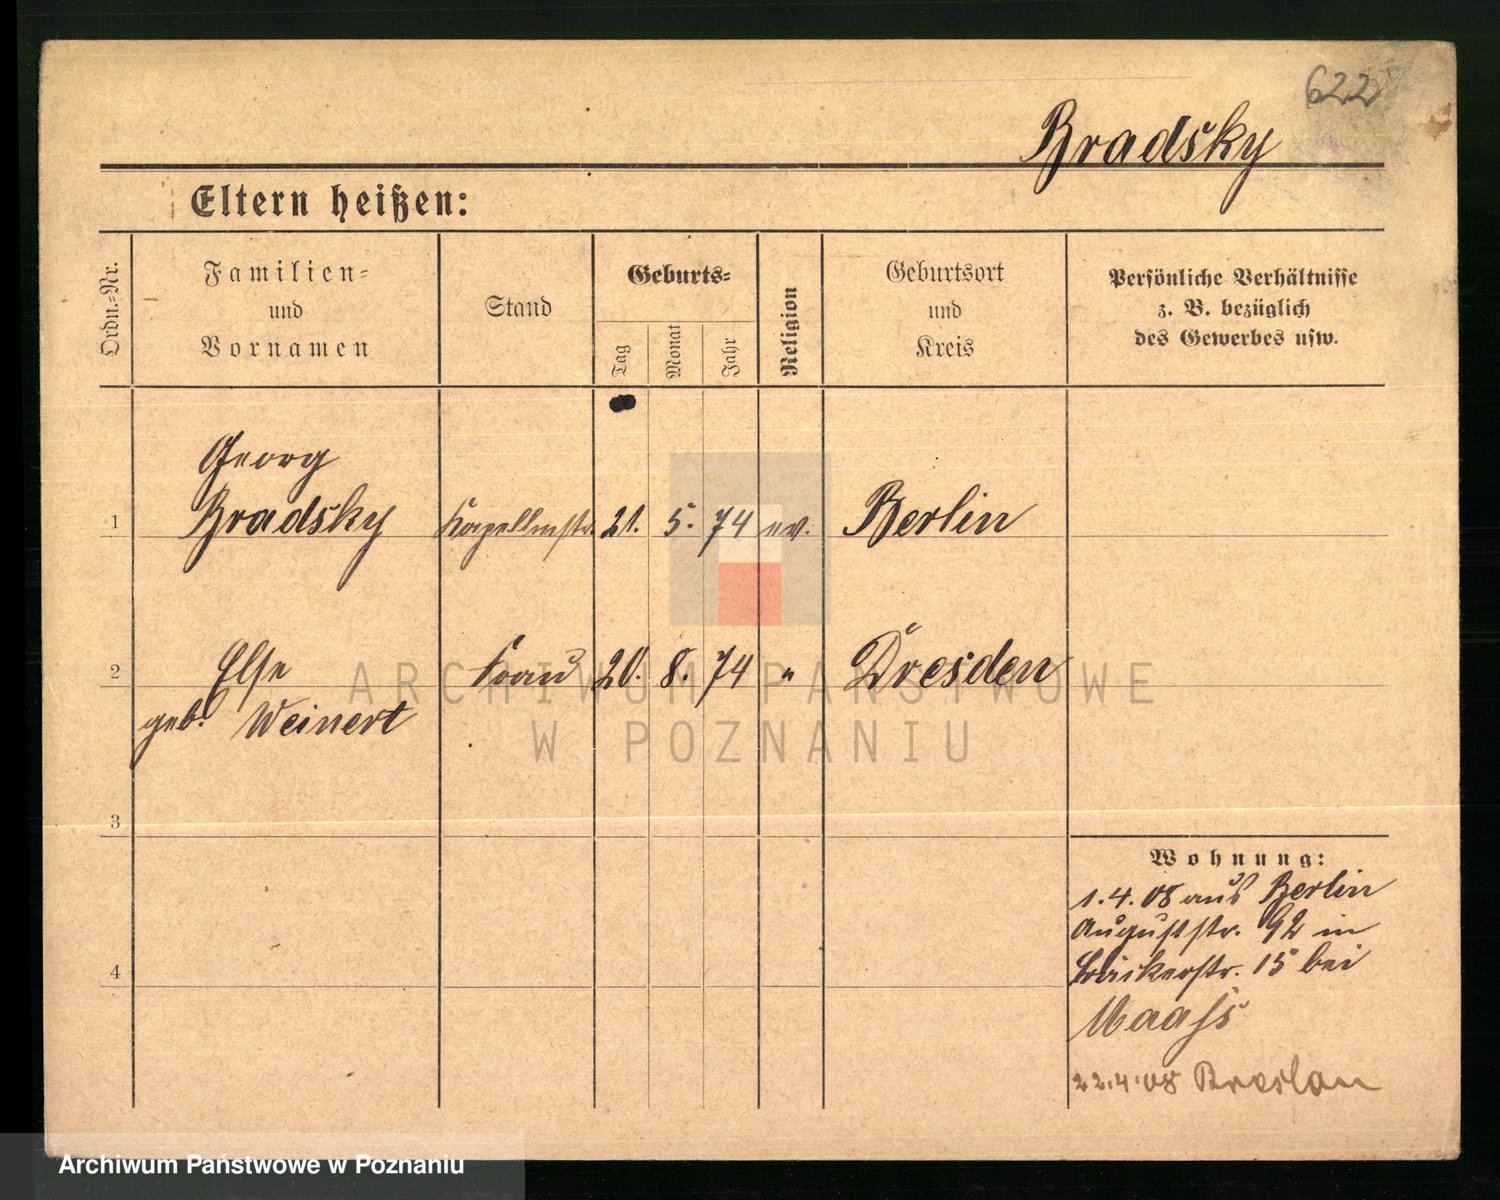 622
Bradsky
Eltern heißen:
Ordn.-Nr.
Familien-
und
Vornamen
Stand
Geburts-
Tag
Monat
Jahr
Religion
Geburtsort
und
Kreis
Persönliche Verhältnisse
z. B. bezüglich
des Gewerbes usw.
1
Georg
Bradsky
Kapellmstr.
21.
5.
74
ev.
Berlin
2
Else
geb. Weinert
Frau
20.
8.
74
"
Dresden
3
4
Wohnung:
1.4.08 aus Berlin
Auguststr. 92 in
15 bei
Maaß
22.4.08 Breslau
ARCHIWUM PAŃSTWOWE
W POZNANIU
Archiwum Państwowe w Poznaniu